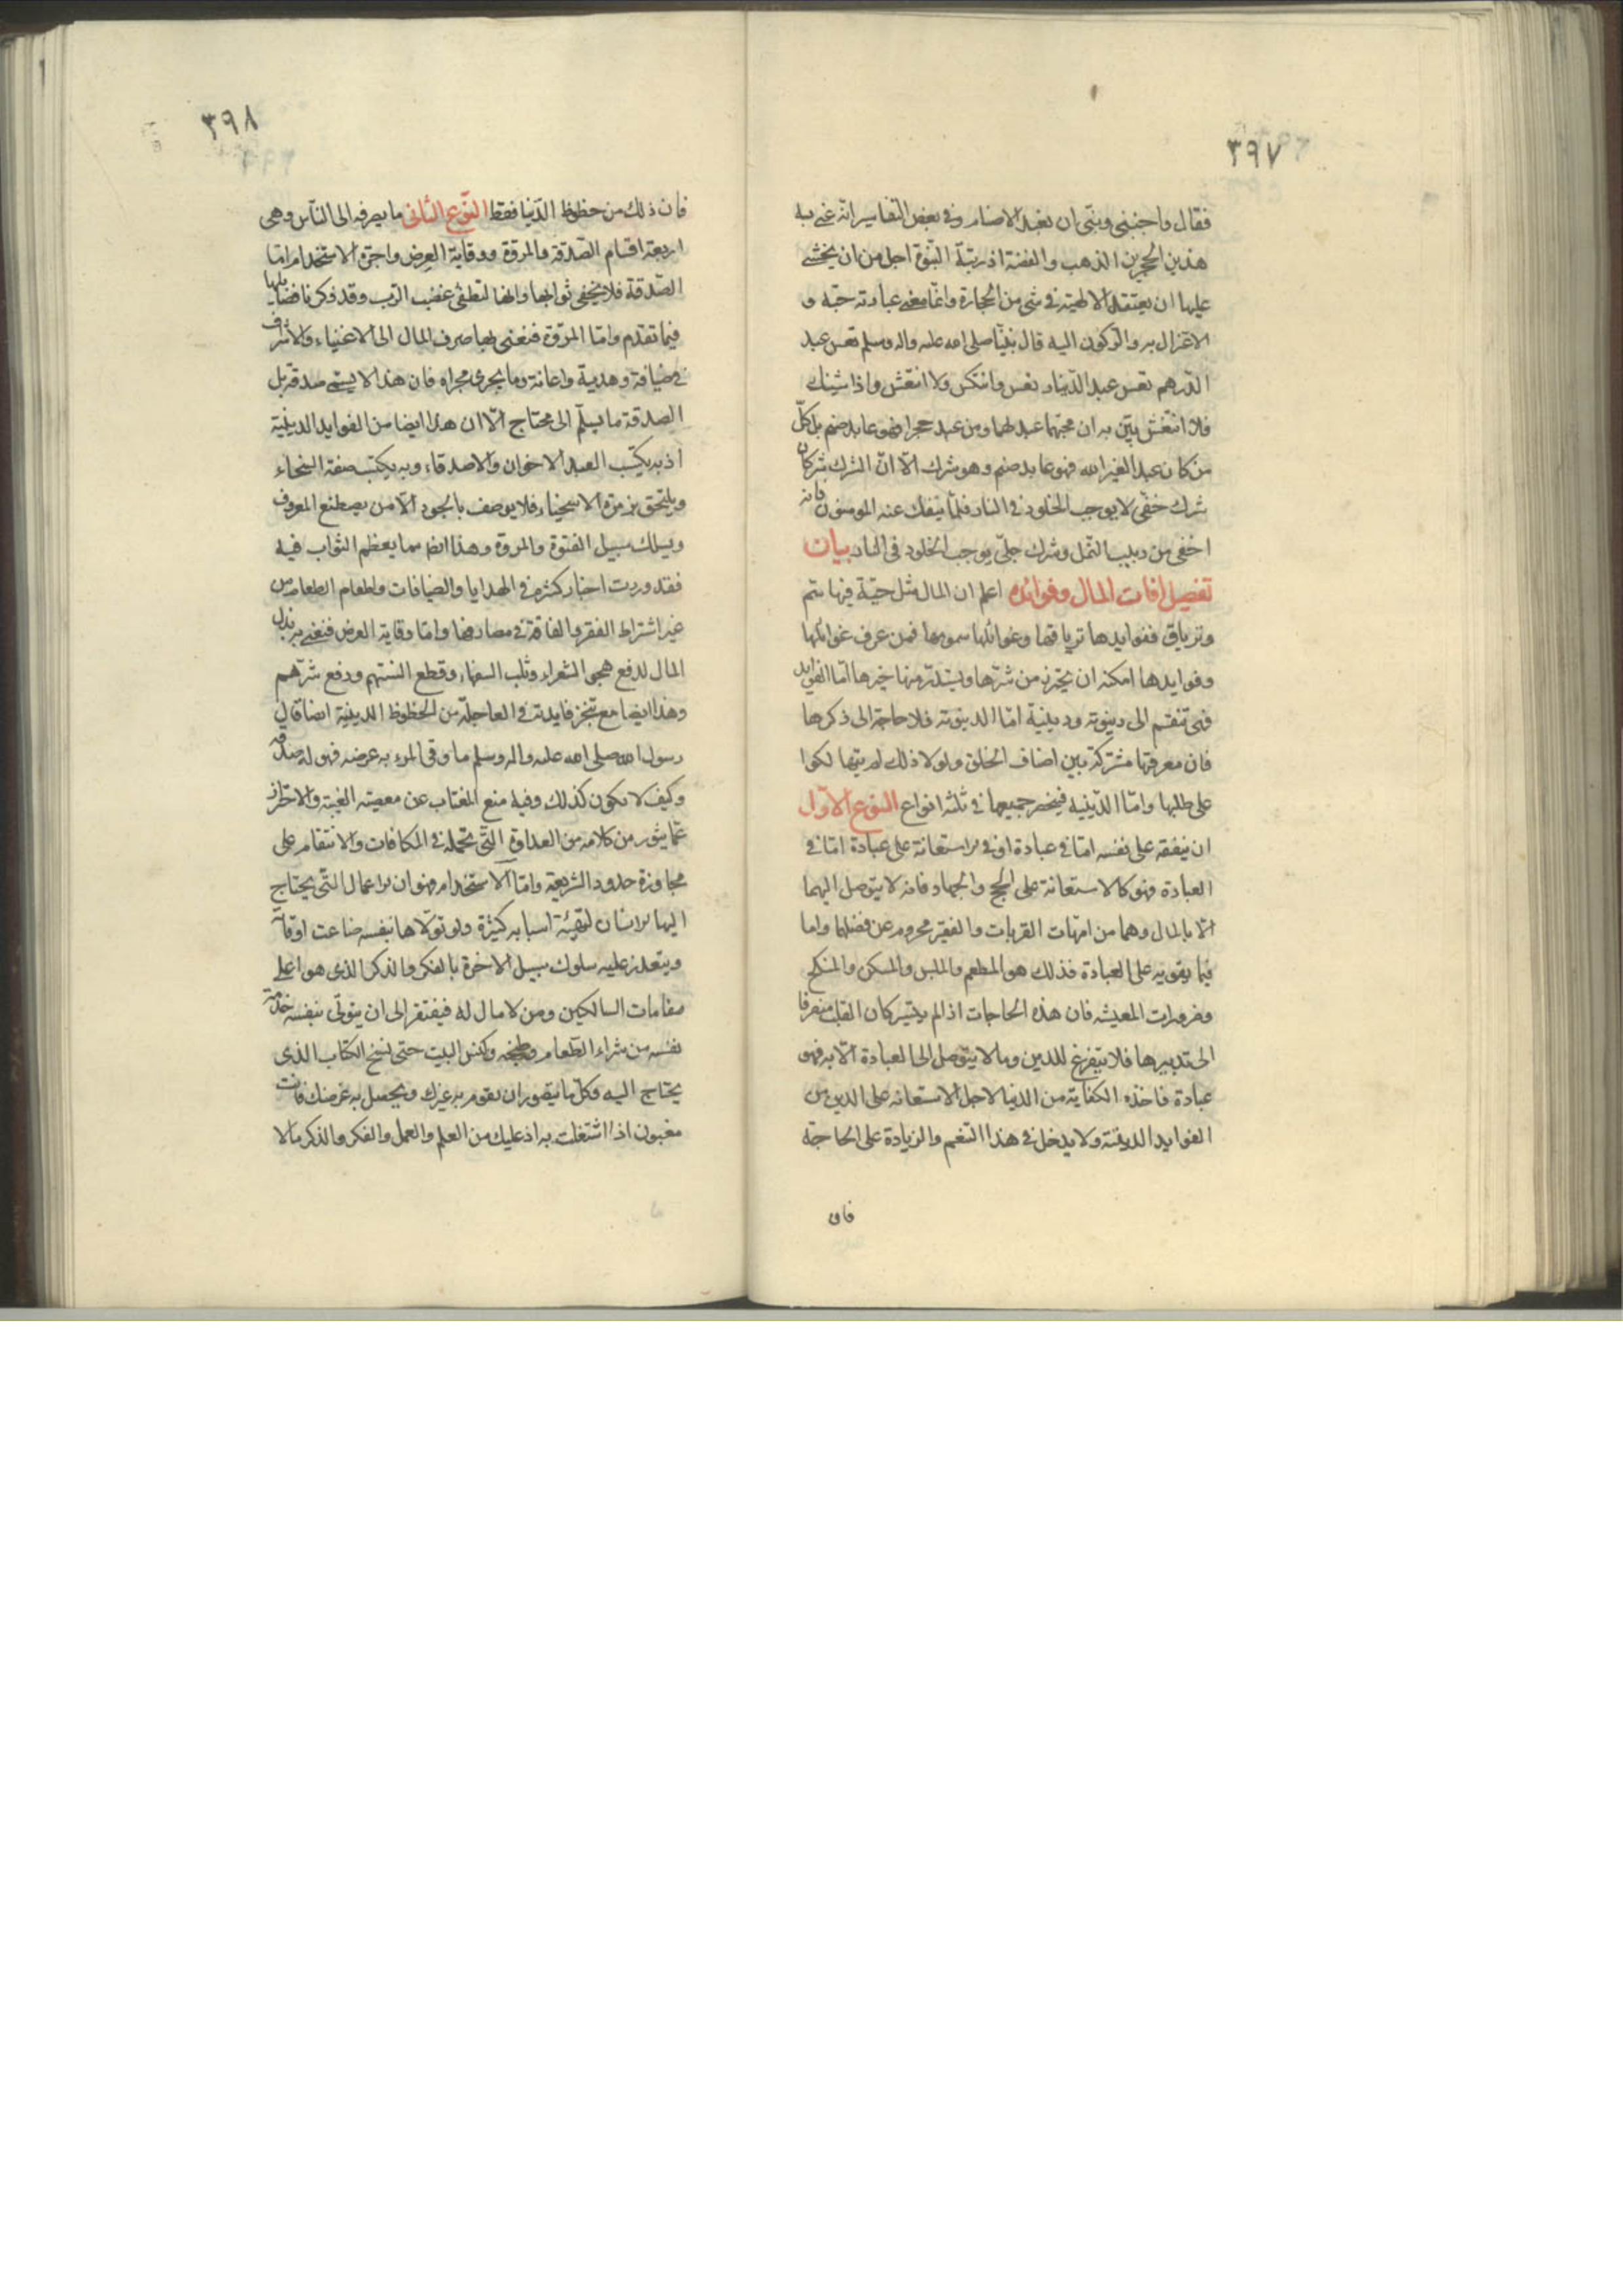 ٣٩٧
فقال واجنبني وبنيّ ان نعبد الاصنام وفي بعض التفاسير انّه عنى به
هذين الحجرين الذهب والفضة اذ رتبة النبوّة اجل من ان يخشى
عليها ان يعتقد الالهية في شئ من الحجارة وانّما معنى عبادته حبّه و
الاغترار به والركون اليه قال نبيّنا صلى الله عليه واله وسلم تعس عبد
الدرهم تعس عبد الدينار تعس وانتكس ولا انتعش واذا شيك
فلا انتقش بيّن به ان محبّهما عبد لهما ومن عبد حجرا فهو عابد صنم بل كلّ
من كان عبدا لغير الله فهو عابد صنم وهو شرك الّا انّ الشرك شركان
شرك خفّى لا يوجب الخلود في النار فلمّا ينفك عنه المومنون فانه
اخفى من دبيب النمل وشرك جلّى يوجب الخلود في النار بيان
تفصيل افات المال وفوائده اعلم ان المال مثل حيّة فيها سم
وترياق ففوايدها ترياقها وغوائلها سمومها فمن عرف غوائلها
وفوايدها امكنه ان يحترز من شرّها ويستدرّ منها خيرها امّا الفوايد
فهى تنقسم الى دينوية ودينية امّا الدينوية فلا حاجة الى ذكرها
فان معرفتها مشتركة بين اصناف الخلق ولولا ذلك لم يتهالكوا
على طلبها وامّا الدّينية فينحصر جميعها في ثلثة انواع النوع الاوّل
ان ينفقه على نفسه امّا في عبادة او في الاستعانة على عبادة امّا في
العبادة فهو كالاستعانة على الحج والجهاد فانه لا يتوصل اليهما
الّا بالمال وهما من امّهات القربات والفقير محروم عن فضلهما واما
فيما يقويه على العبادة فذلك هو المطعم والملبس والمسكن والمنكح
وضرورات المعيشة فان هذه الحاجات اذا لم يتيسّر كان القلب منصرفا
الى تدبيرها فلا يتفرغ للدين وما لا يتوصل الى العبادة الّا به فهو
عبادة فاخذه الكفاية من الدنيا لاجل الاستعانة على الدين من
الفوايد الدينية ولا يدخل في هذا التنعم والزيادة على الحاجة
فان
٣٩٨
فان ذلك من حظوظ الدّنيا فقط النّوع الثانى ما يصرفه الى النّاس وهى
اربعة اقسام الصّدقة والمروّة ووقاية العِرض واجرة الاستخدام امّا
الصّدقة فلا يخفى ثوابها وانها لتطفئ غضب الرّب وقد ذكرنا فضايلها
فيما تقدم وامّا المروّة فنعنى بها صرف المال الى الاغنياء والاشراف
في ضيافة وهدية واعانة وما يجرى مجراه فان هذا لا يسمّى صدقة بل
الصدقة ما يسلّم الى محتاج الّا ان هذا ايضا من الفوايد الدينية
اذ به يكتسب العبد الاخوان والاصدقاء وبه يكتسب صفة السخاء
ويلتحق بزمرة الاسخياء فلا يوصف بالجود الّا من يصطنع المعروف
ويسلك سبيل الفتوة والمروة وهذا ايضا مما يعظم الثواب فيه
فقد وردت اخبار كثيرة في الهدايا والضيافات واطعام الطعام من
غير اشتراط الفقر والفاقة في مصارفها وامّا وقاية العرض فنعنى به بذل
المال لدفع هجو الشعراء وثلب السفهاء وقطع السنتهم ودفع شرّهم
وهذا ايضا مع تنجز فايدته في العاجلة من الحظوظ الدينية ايضا قال
رسول الله صلى الله عليه واله وسلم ما وقى المرء به عرضه فهو له صدقة
وكيف لا يكون كذلك وفيه منع المغتاب عن معصية الغيبة والاحتراز
عمّا يثور من كلامه من العداوة التّى تحمله في المكافات والانتقام على
مجاوزة حدود الشريعة وامّا الاستخدام فهو ان الاعمال التّى يحتاج
اليها الانسان لتهيئة اسبابه كثيرة ولو تولّاها بنفسه ضاعت اوقاته
ويتعذر عليه سلوك سبيل الاخرة بالفكر والذكر الذى هو اعلى
مقامات السالكين ومن لا مال له فيفتقر الى ان يتولّى بنفسه خدمة
نفسه من شراء الطّعام وطبخه وكنس البيت حتى نسخ الكتاب الذى
يحتاج اليه وكلّ ما يتصور ان يقوم به غيرك ويحصل به غرضك فانت
مغبون اذا اشتغلت به اذ عليك من العلم والعمل والفكر والذكر ما لا